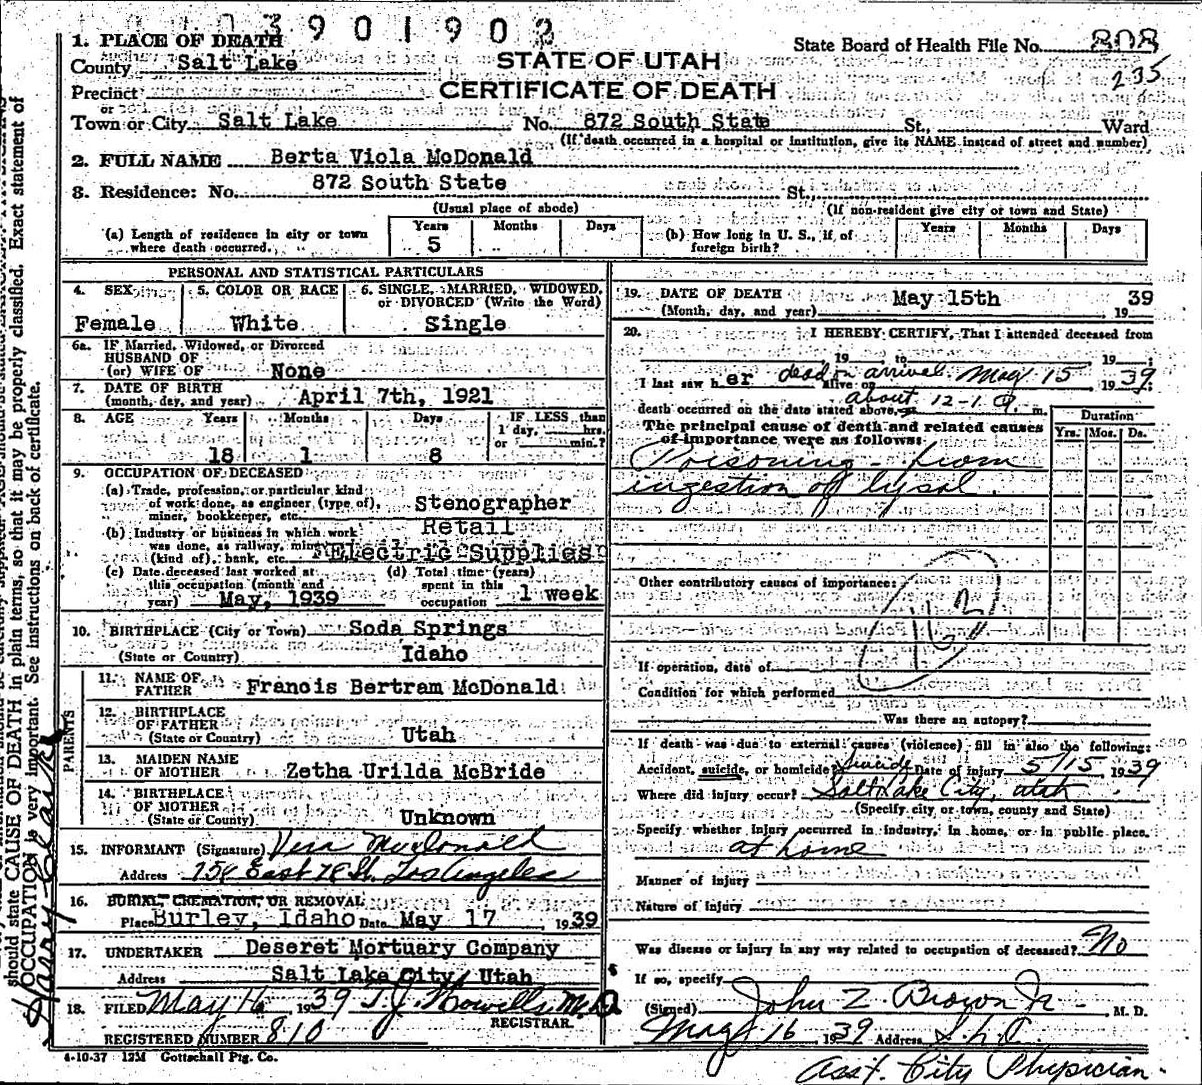 03901902
State Board of Health File No. 808
235
STATE OF UTAH
CERTIFICATE OF DEATH
1. PLACE OF DEATH
County Salt Lake
Precinct
or
Town or City Salt Lake No. 872 South State St., Ward
(If death occurred in a hospital or institution, give its NAME instead of street and number)
2. FULL NAME Berta Viola McDonald
3. Residence: No. 872 South State St.,
(Usual place of abode) (If non-resident give city or town and State)
(a) Length of residence in city or town where death occurred. Years 5 Months Days
(b) How long in U. S., if of foreign birth? Years Months Days
PERSONAL AND STATISTICAL PARTICULARS
4. SEX Female
5. COLOR OR RACE White
6. SINGLE, MARRIED, WIDOWED, or DIVORCED (Write the Word) Single
6a. IF Married, Widowed, or Divorced
HUSBAND OF
(or) WIFE OF None
7. DATE OF BIRTH
(month, day, and year) April 7th, 1921
8. AGE Years Months Days IF LESS than
1 day, hrs.
or min.?
18 1 8
9. OCCUPATION OF DECEASED
(a) Trade, profession, or particular kind
of work done, as engineer (type of),
miner, bookkeeper, etc. Stenographer
(b) Industry or business in which work
was done, as railway, mine
(kind of), bank, etc. Retail
Electric Supplies
(c) Date deceased last worked at
this occupation (month and
year) May, 1939
(d) Total time (years)
spent in this
occupation 1 week
10. BIRTHPLACE (City or Town) Soda Springs
(State or Country) Idaho
PARENTS
11. NAME OF
FATHER Francis Bertram McDonald
12. BIRTHPLACE
OF FATHER
(State or Country) Utah
13. MAIDEN NAME
OF MOTHER Zetha Urilda McBride
14. BIRTHPLACE
OF MOTHER
(State or County) Unknown
15. INFORMANT (Signature) Vera McDonald
Address East 78 St. Los Angeles
16. BURIAL, CREMATION, OR REMOVAL
Place Burley, Idaho Date May 17 1939
17. UNDERTAKER Deseret Mortuary Company
Address Salt Lake City, Utah
18. FILED May 16 1939 T. J. Howells M.D.
REGISTRAR.
REGISTERED NUMBER 810
4-10-37 12M Gottschall Ptg. Co.
19. DATE OF DEATH May 15th 39
(Month, day, and year) 19
20. I HEREBY CERTIFY, That I attended deceased from
19 , to 19 ;
I last saw her dead on arrival May 15 1939;
alive on
about 12-1
death occurred on the date stated above, m.
The principal cause of death and related causes
of importance were as follows:
Duration
Yrs. Mos. Ds.
Poisoning - from
ingestion of lysol.
Other contributory causes of importance:
If operation, date of
Condition for which performed
Was there an autopsy?
If death was due to external causes (violence) fill in also the following:
Accident, suicide, or homicide? Suicide Date of injury 5/15 1939
Where did injury occur? Salt Lake City, Utah
(Specify city or town, county and State)
Specify whether injury occurred in industry, in home, or in public place.
at home
Manner of injury
Nature of injury
Was disease or injury in any way related to occupation of deceased? No
If so, specify
(Signed) John Z. Brown Jr - M. D.
May 16 1939 Address S.L.C.
Asst. City Physician.
should state CAUSE OF DEATH in plain terms, so that it may be properly classified. Exact statement of
OCCUPATION is very important. See instructions on back of certificate.